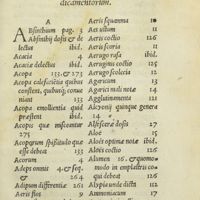 dicamentorum.
A
Absinthium pag. 3
Absinthij dosis & de
lectus ibid.
Acacia 4
Acaciæ delectus ibid.
Acopa 153. & 273
Acopa calefacientia quibus
constent, quibusq; conue
niant 271
Acopa emollientia quid
præstent ibid.
Acopis quæ misceantur
275
Acoporum spissitudo quæ
esse debeat 133
Acorum 4
Adeps omnis 4 & seq.
& 264
Adipum differentiæ 261
Aeris flos 9
Aeris squamma 10
Aes ustum 11
Aeris coctio 126
Aeris scoria 11
Aerugo rasa ibid.
Aeruginis coctio 126
Aerugo scolecia 12
Agaricum 13
Agarici mali notæ 14
Agglutinamenta 121
Alcyonij quinque genera
14
Aloë 15
Aloës optimæ notæ ibid.
Aloës coctio 126
Alumen 16. & quomo
modo in emplastri co
qui debeat
Alypia unde dicta 112
Ammoniacum 17